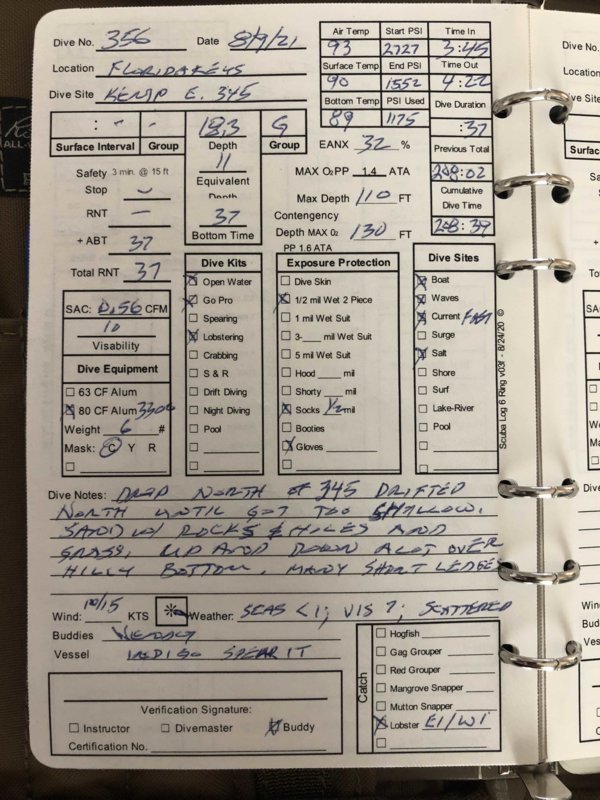 Dive No. 356 Date 8/9/21
Location FLORIDA KEYS
Dive Site KEMP E. 345
Air Temp 93 Start PSI 2727 Time In 3:45
Surface Temp 90 End PSI 1552 Time Out 4:22
Bottom Temp 89 PSI Used 1175 Dive Duration :37
Previous Total 208:02
Cumulative Dive Time 208:39
: - -
Surface Interval Group
18.3 G
Depth Group
11
Equivalent Depth
37
Bottom Time
EANX 32 %
MAX O2PP 1.4 ATA
Max Depth 110 FT
Contengency
Depth MAX 02 130 FT
PP 1.6 ATA
Safety 3 min. @ 15 ft
Stop
RNT -
+ ABT 37
Total RNT 37
SAC: 0.56 CFM
10
Visability
Dive Equipment
63 CF Alum
80 CF Alum 3300
Weight 6 #
Mask: C Y R
Dive Kits
Open Water
Go Pro
Spearing
Lobstering
Crabbing
S & R
Drift Diving
Night Diving
Pool
Exposure Protection
Dive Skin
1/2 mil Wet 2 Piece
1 mil Wet Suit
3-____ mil Wet Suit
5 mil Wet Suit
Hood ____ mil
Shorty ____ mil
Socks 1/2 mil
Booties
Gloves
Dive Sites
Boat
Waves
Current FAST
Surge
Salt
Shore
Surf
Lake-River
Pool
Scuba Log 6 Ring v03f - 8/24/20 ©
Dive Notes: DROP NORTH OF 345 DRIFTED
NORTH UNTIL GOT TOO SHALLOW.
SAND W/ ROCKS & HOLES AND
GRASS, UP AND DOWN A LOT OVER
HILLY BOTTOM, MANY SHORT LEDGE
Wind: 10/15 KTS Weather: SEAS <1; VIS ?; SCATTERED
Buddies
Vessel INDIGO SPEAR IT
Verification Signature:
Instructor Divemaster Buddy
Certification No.
Catch
Hogfish
Gag Grouper
Red Grouper
Mangrove Snapper
Mutton Snapper
Lobster E1/W1
Dive No.
Location
Dive Site
Surface
Safety
Stop
RNT
+ ABT
Total RNT
Dive
Wind:
Buddies
Vessel